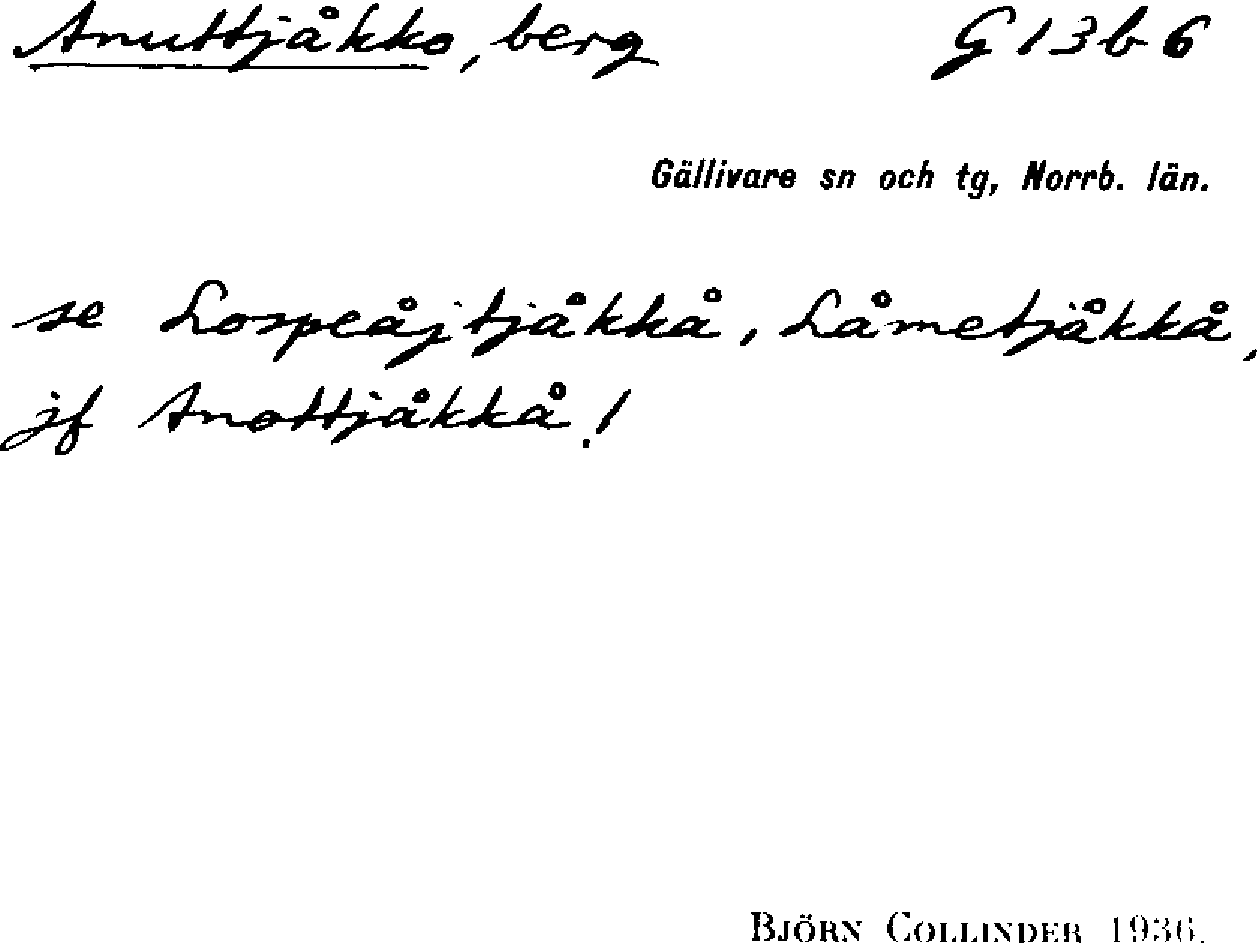 Anuttjåkko, berg G13b6
Gällivare sn och tg, Norrb. län.
se Lospeåjtjåkkå, Låmetjåkkå,
jf Anottjåkkå!
BJÖRN COLLINDER 1936.